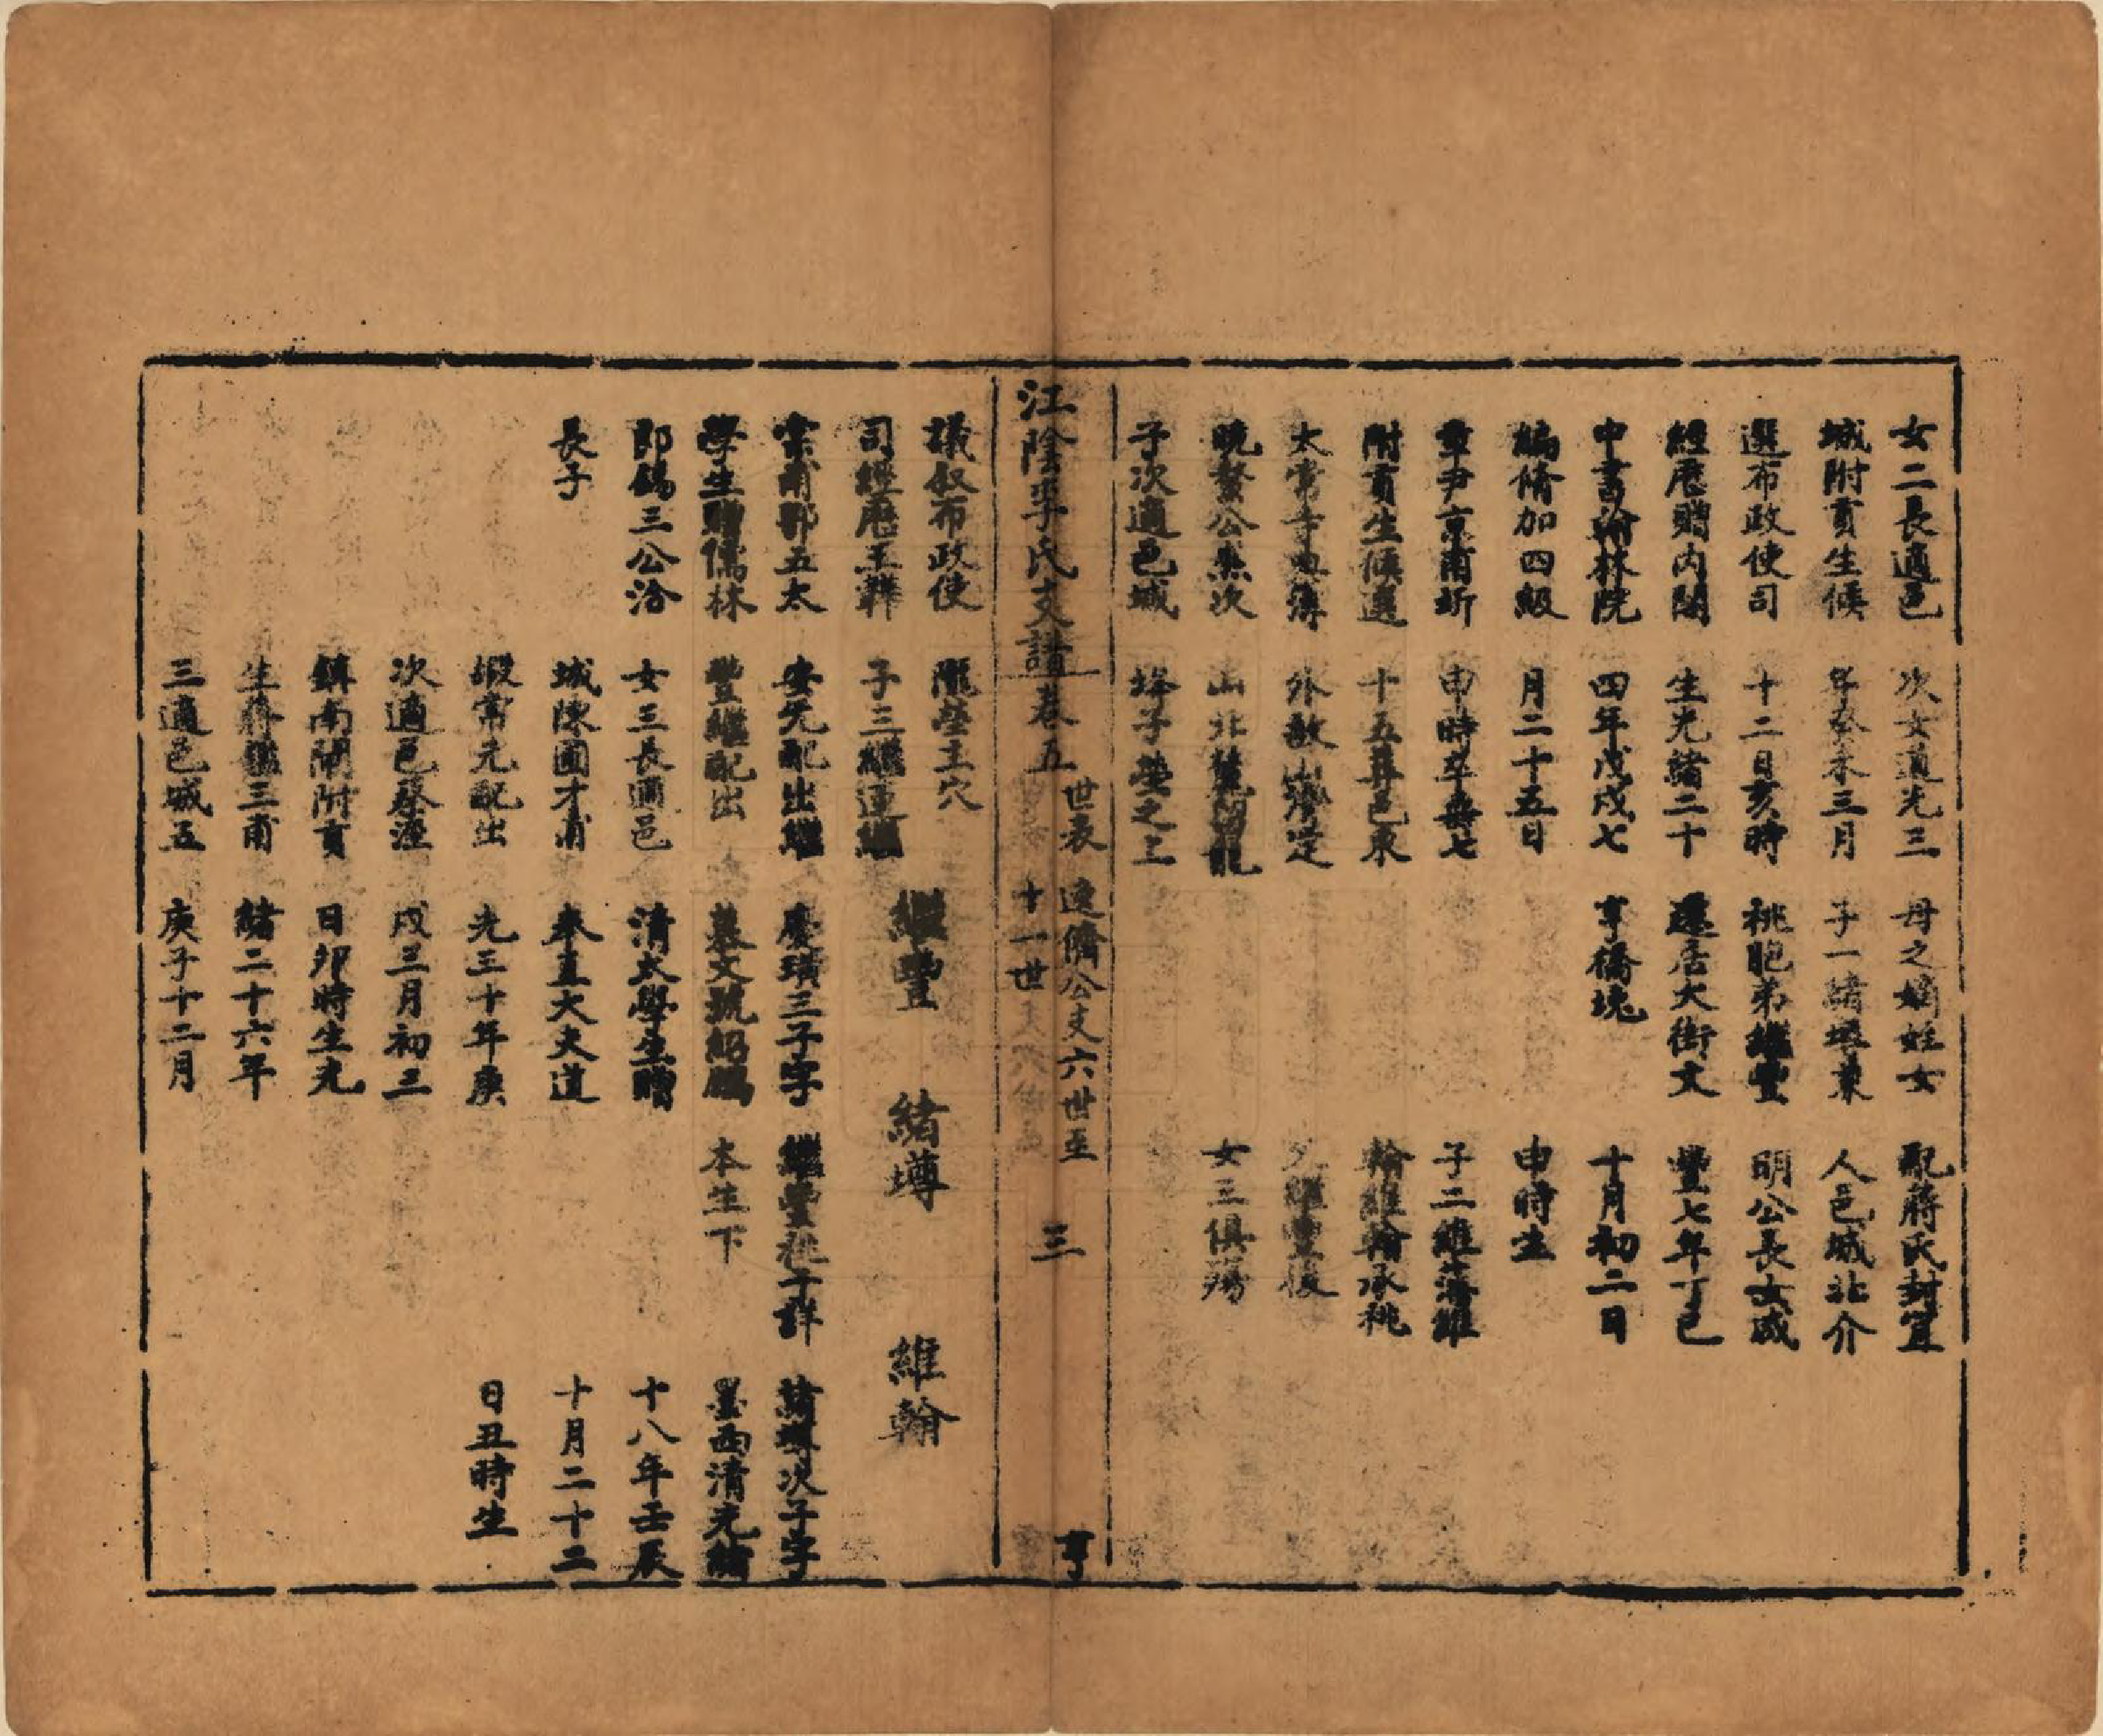 女二長適邑
城附貢生候
選布政使司
經歷贈內閣
中書翰林院
編脩加四級
章尹京甫圻
附貢生候選
太常寺典簿
晩奎公熙次
子次適邑城
次女道光三
年癸未三月
十二日亥時
生光緒二十
四年戊戌七
月二十五日
申時卒壽七
十五葬邑東
外敔山灣定
山北麓
塋之上
母之嫡姪女
子一緒塼兼
祧胞弟繼豐
遷居大街文
亨橋堍
配蔣氏封宜
人邑城北介
明公長女咸
豐七年丁巳
十月初二日
申時生
子二維藩維
翰維翰承祧
繼豐後
女三俱殤
江陰李氏支譜卷五
世表
連儕公支六世至
十一世
三
亨
議叙布政使
司經歷王
宗甫郡五太
學生贈儒林
郎錫三公洽
長子
隴塋主穴
子三繼運繼
安元配出繼
豐繼配出
女三長適邑
城陳圃才甫
嘏常元配出
次適邑蔡涇
鎮南閘附貢
生蔣三甫
三適邑城五
繼豐
慶璜三子字
慕文號紹鵬
清太學生贈
奉直大夫道
光三十年庚
戌三月初三
日卯時生光
緒二十六年
庚子十二月
緒塼
繼豐祧子詳
本生下
維翰
緒塼次子字
墨西清光緒
十八年壬辰
十月二十二
日丑時生